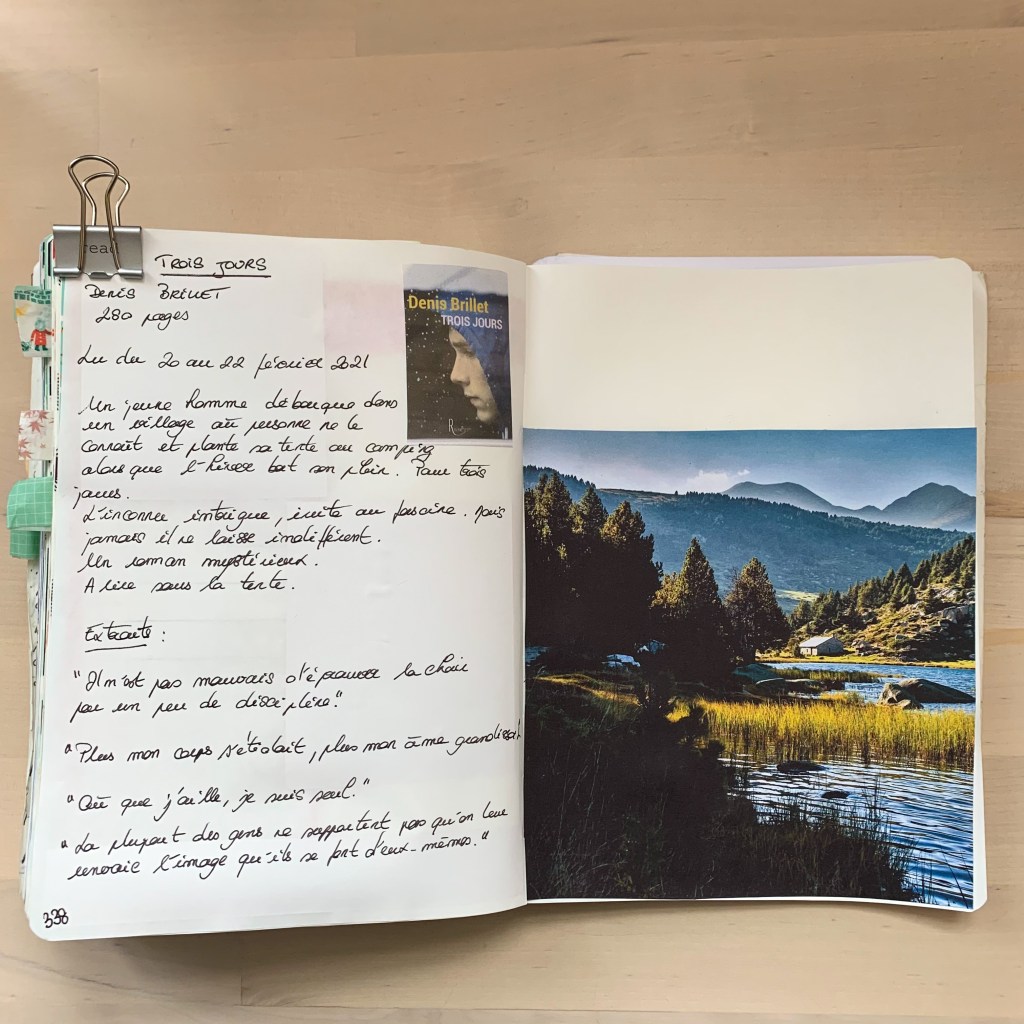 read
TROIS JOURS
Denis BRILLET
280 pages
Denis Brillet
TROIS JOURS
Lu du 20 au 22 février 2021
Un jeune homme débarque dans
un village où personne ne le
connaît et plante sa tente au camping
alors que l'hiver bat son plein. Pour trois
jours.
L'inconnu intrigue, irrite au fascine. Mais
jamais il ne laisse indifférent.
Un roman mystérieux.
A lire sous la tente.
Extraits :
"Il n'est pas mauvais d'éprouver la chair
par un peu de discipline."
"Plus mon corps s'étiolait, plus mon âme grandissait
"Où que j'aille, je suis seul."
"La plupart des gens ne supportent pas qu'on leur
renvoie l'image qu'ils se font d'eux-mêmes."
338